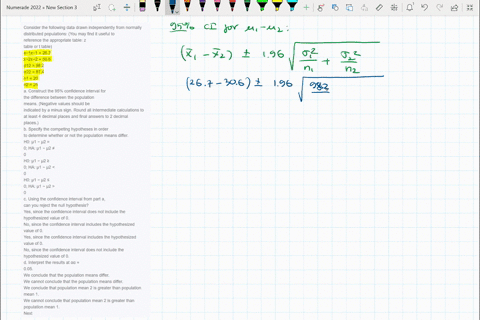 Numerade 2022 > New Section 3
Consider the following data drawn independently from normally
distributed populations: (You may find it useful to
reference the appropriate table: z
table or t table)
a. Construct the 95% confidence interval for
the difference between the population
means. (Negative values should be
indicated by a minus sign. Round all intermediate calculations to
at least 4 decimal places and final answers to 2 decimal
places.)
b. Specify the competing hypotheses in order
to determine whether or not the population means differ.
H0: μ1 − μ2 =
0; HA: μ1 − μ2 ≠
0
H0: μ1 − μ2 ≥
0; HA: μ1 − μ2 <
0
H0: μ1 − μ2 ≤
0; HA: μ1 − μ2 >
0
c. Using the confidence interval from part a,
can you reject the null hypothesis?
Yes, since the confidence interval does not include the
hypothesized value of 0.
No, since the confidence interval includes the hypothesized
value of 0.
Yes, since the confidence interval includes the hypothesized
value of 0.
No, since the confidence interval does not include the
hypothesized value of 0.
d. Interpret the results at
0.05.
We conclude that the population means differ.
We cannot conclude that the population means differ.
We conclude that population mean 2 is greater than population
mean 1.
We cannot conclude that population mean 2 is greater than population
mean 1.
Next
95% CI for μ₁-μ₂:
(x̄₁ - x̄₂) ± 1.96 √(σ₁²/n₁ + σ₂²/n₂)
(26.7-30.6) ± 1.96 √98.2